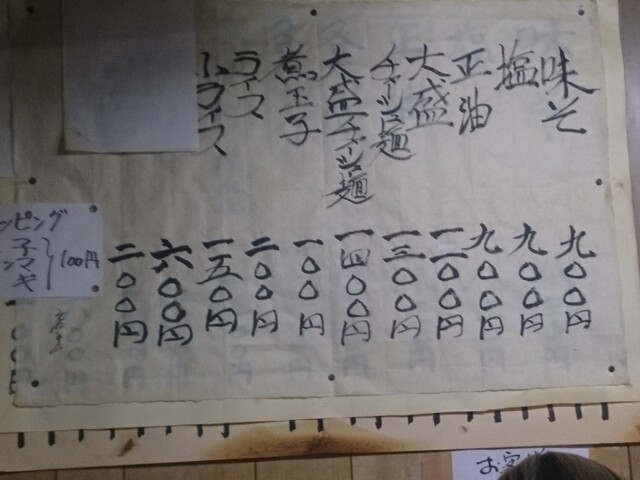 味そ 九〇〇円
塩 九〇〇円
正油 九〇〇円
大盛
チャーシュー麺 一三〇〇円
大盛チャーシュー麺 一四〇〇円
煮玉子 一〇〇円
ライス 二〇〇円
小ライス 一五〇円
六〇〇円
二〇〇円
ッピング
子
マキ
100円